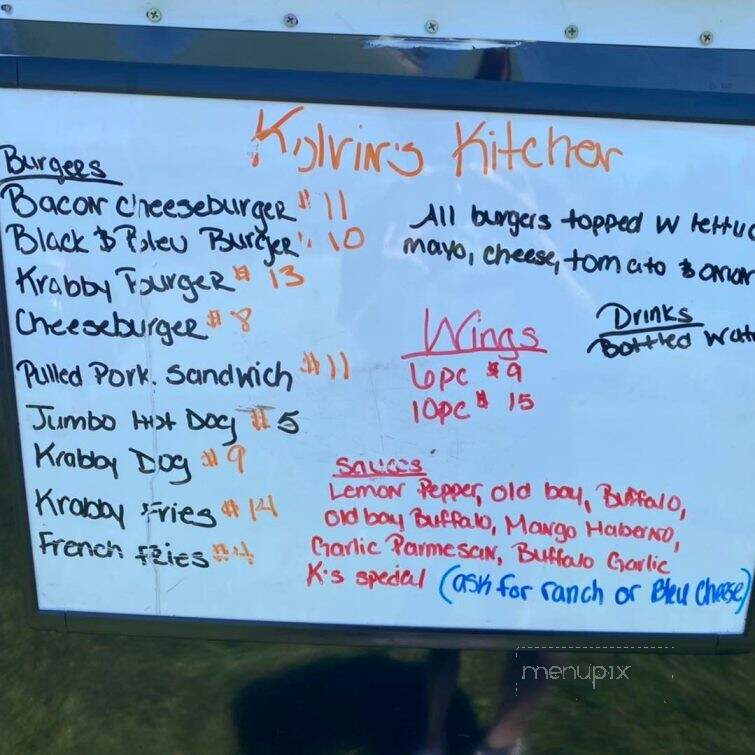 Kylvin's Kitchen
Burgers
Bacon Cheeseburger $11
Black & Bleu Burger $10
Krabby Burger $13
Cheeseburger $8
Pulled Pork. Sandwich $11
Jumbo Hot Dog $5
Krabby Dog $9
Krabby Fries $14
French Fries $4
All burgers topped w lettuc
mayo, cheese, tomato & onion
Wings
6pc $9
10pc $15
Drinks
Bottled Wat
Sauces
Lemon Pepper, Old bay, Buffalo,
Old bay Buffalo, Mango Haberno,
Garlic Parmesan, Buffalo Garlic
K's special (ask for ranch or Bleu Cheese)
menupix